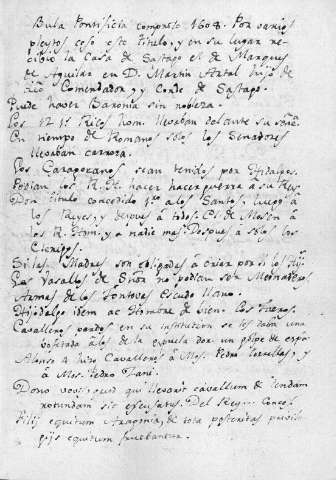 Bula Pontificia compreso 1608. Por varios
pleytos cesò este titulo, y en su lugar re
cibiò la Casa de Sastago el de Marques
de Aguilar en D. Martin Artal hijo de
dicho Comendador, y Conde de Sastago.
Puede haver Baronia sin nobleza.
Los 12 1.s Ricos hom. llevaban delante su señ
En tiempo de Romanos solos los Senadores
llevaban carroza.
Los Caragozanos sean tenidos por Hidalgos.
Podian los R. H. hacer hacer guerra a su Rey.
Don titulo concedido 1.ro a los Santos, luego à
los Reyes, y despues à todos. El de Mosen à
los R. Hom. y a nadie mas. Despues a solos los
Clerigos.
Si las Madres son obligadas à criar por si los Hij
Los Vasallos de Señor no podian ser Mesnaderos
Armas de los Fontovas Escudo llano.
Hijodalgo idem ac Hombre de bien. Los fueros.
Cavalleros pardos en su institucion se les daba una
bofetada à los de la espuela dor. un golpe de espa
Alonso 4 hizo Cavalleros à Mos. Pedro Torrellas, y
à Mos. Pedro Pane.
Dono vovis quid qui llevaret cavallum de
rotundam sit excusatus. Del Rey
Filij equitum Aragonia, de tota posteritas
gijs equitum fruebantur.